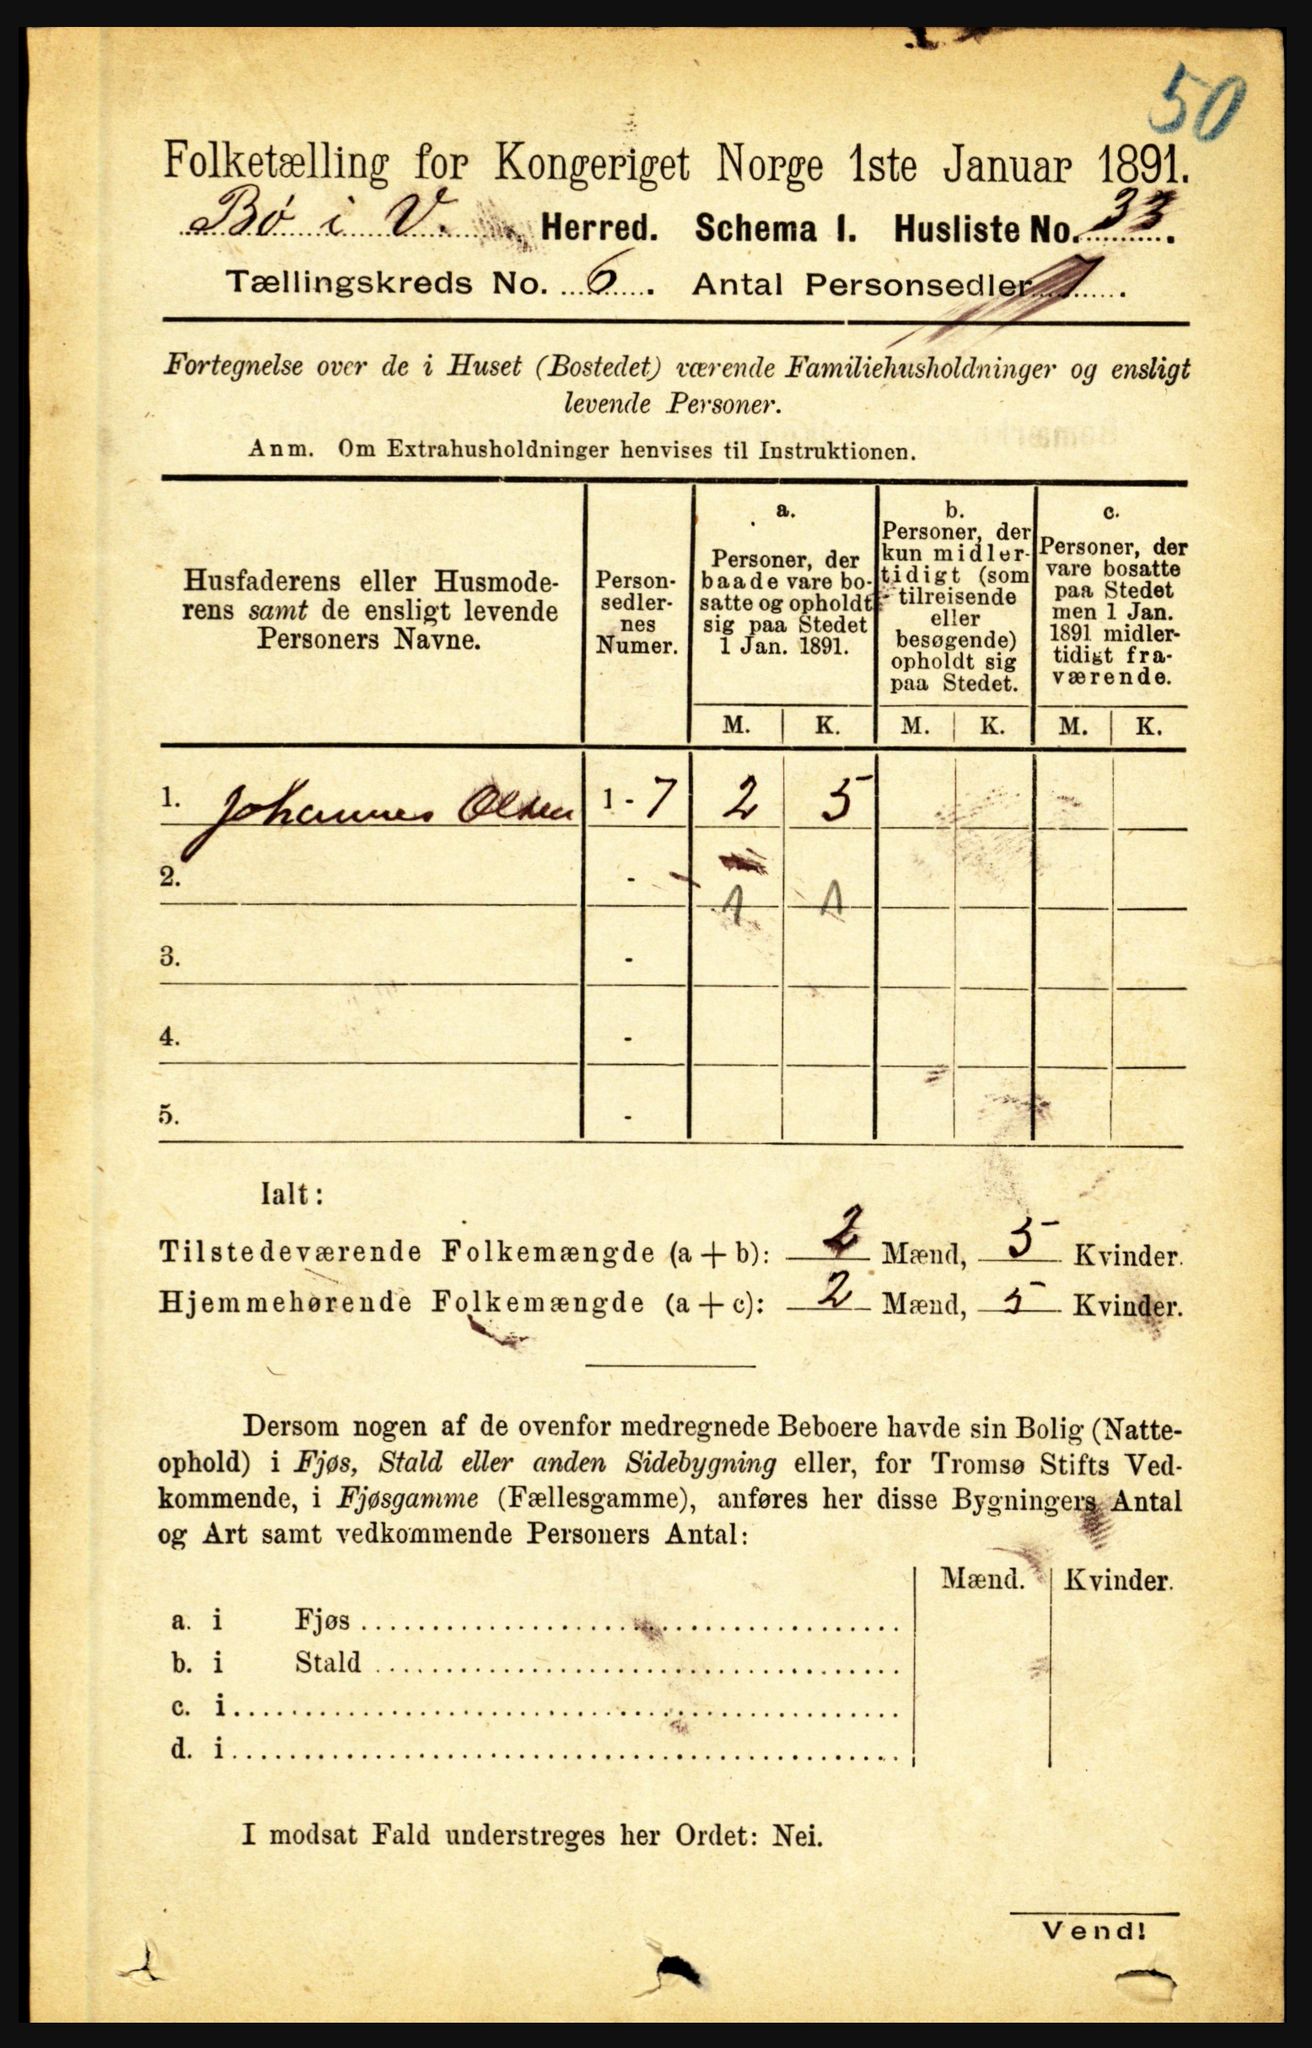 50
Folketælling for Kongeriget Norge 1ste Januar 1891.
Bø i V. Herred. Schema I. Husliste No. 33.
Tællingskreds No. 6. Antal Personsedler 7.
Fortegnelse over de i Huset (Bostedet) værende Familiehusholdninger og ensligt
levende Personer.
Anm. Om Extrahusholdninger henvises til Instruktionen.
Husfaderens eller Husmode-
rens samt de ensligt levende
Personers Navne.
Person-
sedler-
nes
Numer.
a.
Personer, der
baade vare bo-
satte og opholdt
sig paa Stedet
1 Jan. 1891.
b.
Personer, der
kun midler-
tidigt (som
tilreisende
eller
besøgende)
opholdt sig
paa Stedet.
c.
Personer, der
vare bosatte
paa Stedet
men 1 Jan.
1891 midler-
tidigt fra-
værende.
M. K. M. K. M. K.
1. Johannes Olsen 1 - 7 2 5
2. -
1 1
3. -
4. -
5. -
Ialt:
Tilstedeværende Folkemængde (a + b): 2 Mænd, 5 Kvinder.
Hjemmehørende Folkemængde (a + c): 2 Mænd, 5 Kvinder.
Dersom nogen af de ovenfor medregnede Beboere havde sin Bolig (Natte-
ophold) i Fjøs, Stald eller anden Sidebygning eller, for Tromsø Stifts Ved-
kommende, i Fjøsgamme (Fællesgamme), anføres her disse Bygningers Antal
og Art samt vedkommende Personers Antal:
Mænd. Kvinder.
a. i Fjøs
b. i Stald
c. i
d. i
I modsat Fald understreges her Ordet: Nei.
Vend!